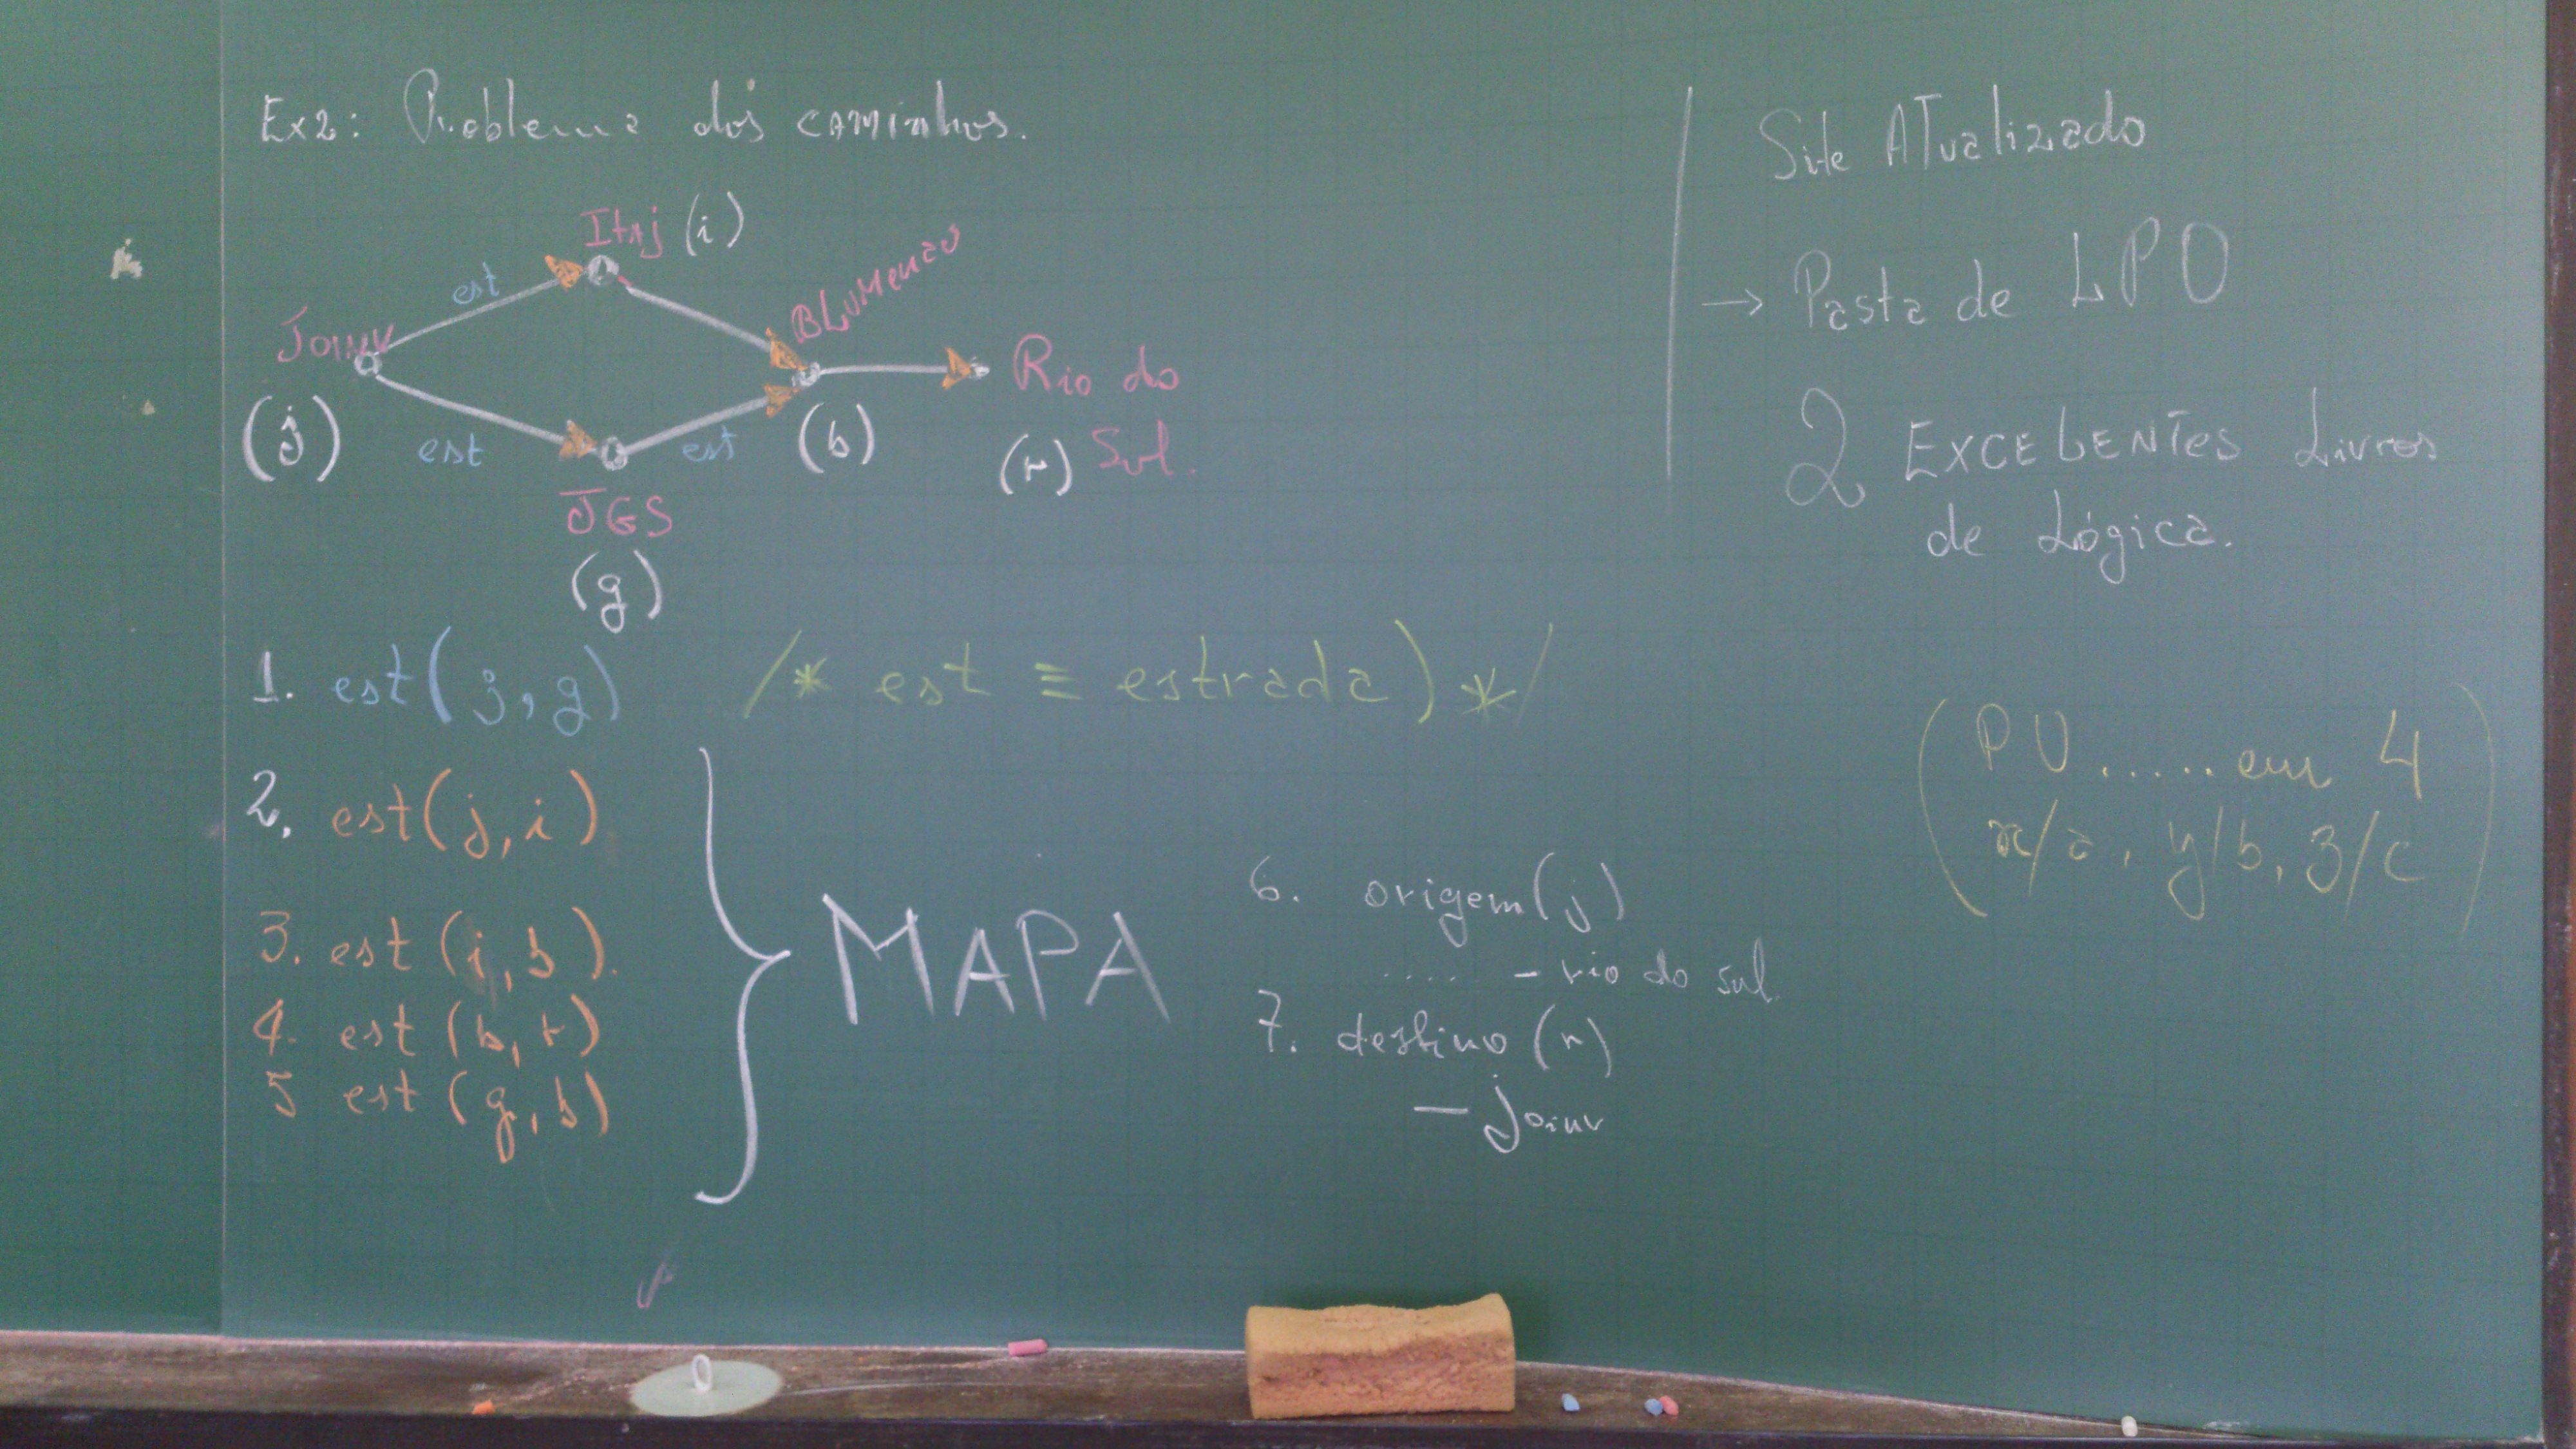 Ex2: Problema dos caminhos.
Itaj (i)
est
Joinv
BLUMenau
(j)
est
est
(b)
Rio do
(r) Sul.
JGS
(g)
1. est(j,g) /* est ≡ estrada) */
2. est(j,i)
3. est (i,b).
4. est (b,r)
5 est (g,b)
MAPA
6. origem(j)
..... - rio do sul.
7. destino (r)
- Joinv
Site ATualizado
→ Pasta de LPO
2 EXCELENTes Livros
de Lógica.
(PU ...... em 4
x/a, y/b, z/c)